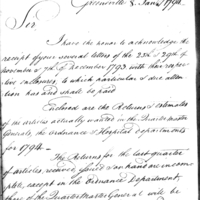 Greenville 8 Jany 1794.
Sir
I have the honor to acknowledge the
receipt of your several letters of the 23d & 29th of
November & 7th of December 1793 with their
inclosures, to which particular & due atten-
tion has and shall be paid
Enclosed are the Returns & estimates
of the articles actually wanted in the Quarter Master
Generals, the ordnance & Hospital departments
for 1794.
The Returns for the last quarter
of articles received issued & on hand are incom-
plete, except in the Ordnance Department,
those of the Quarter Master General will be